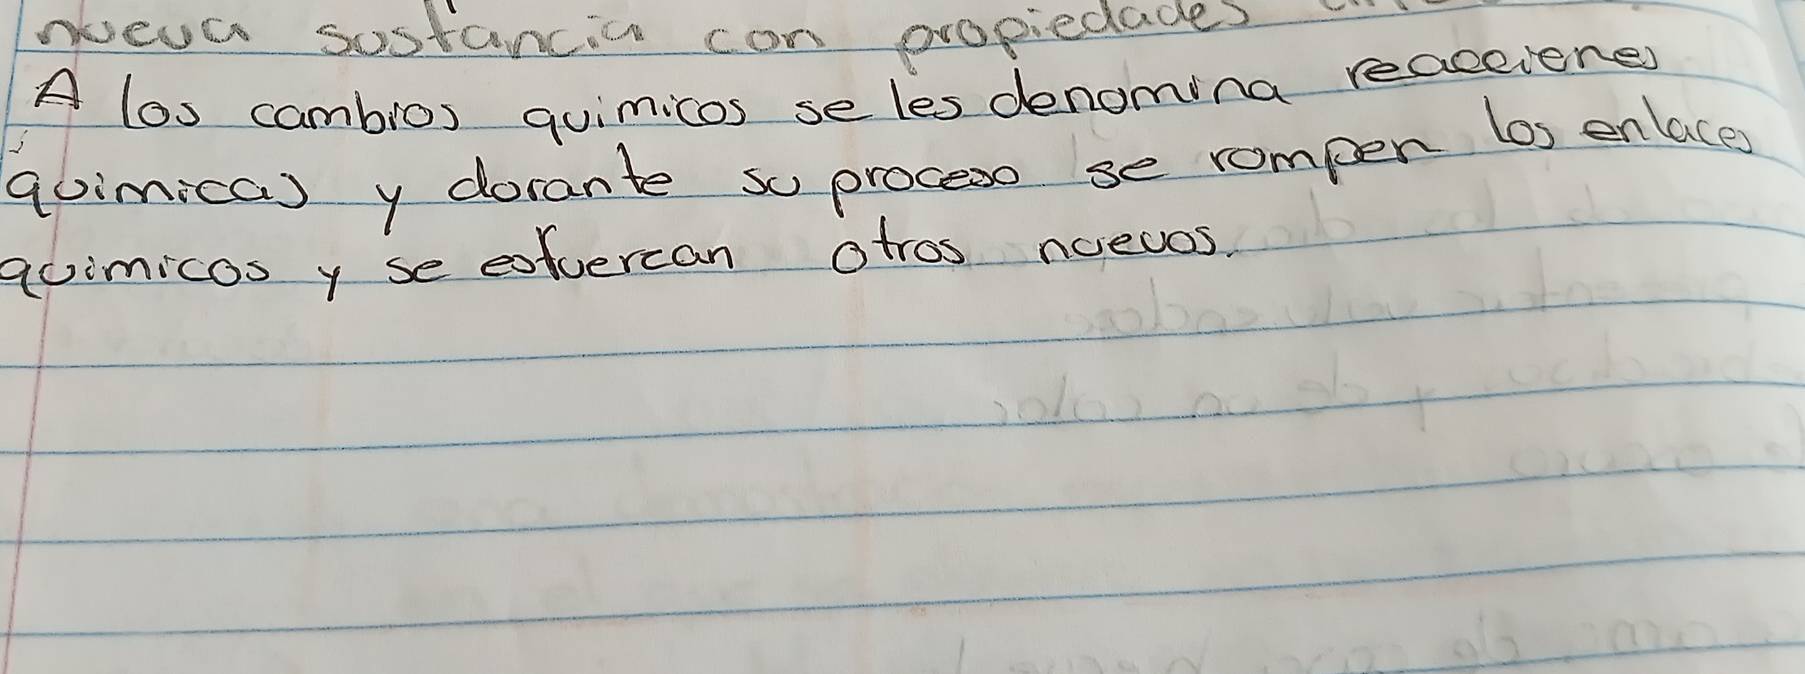 nueva sustancia con propiedades
A los cambios quimicos se les denomina reacciones
quimicas y dorante su proceso se rompen los enlaces
quimicos y se esfuercan otros nuevos.